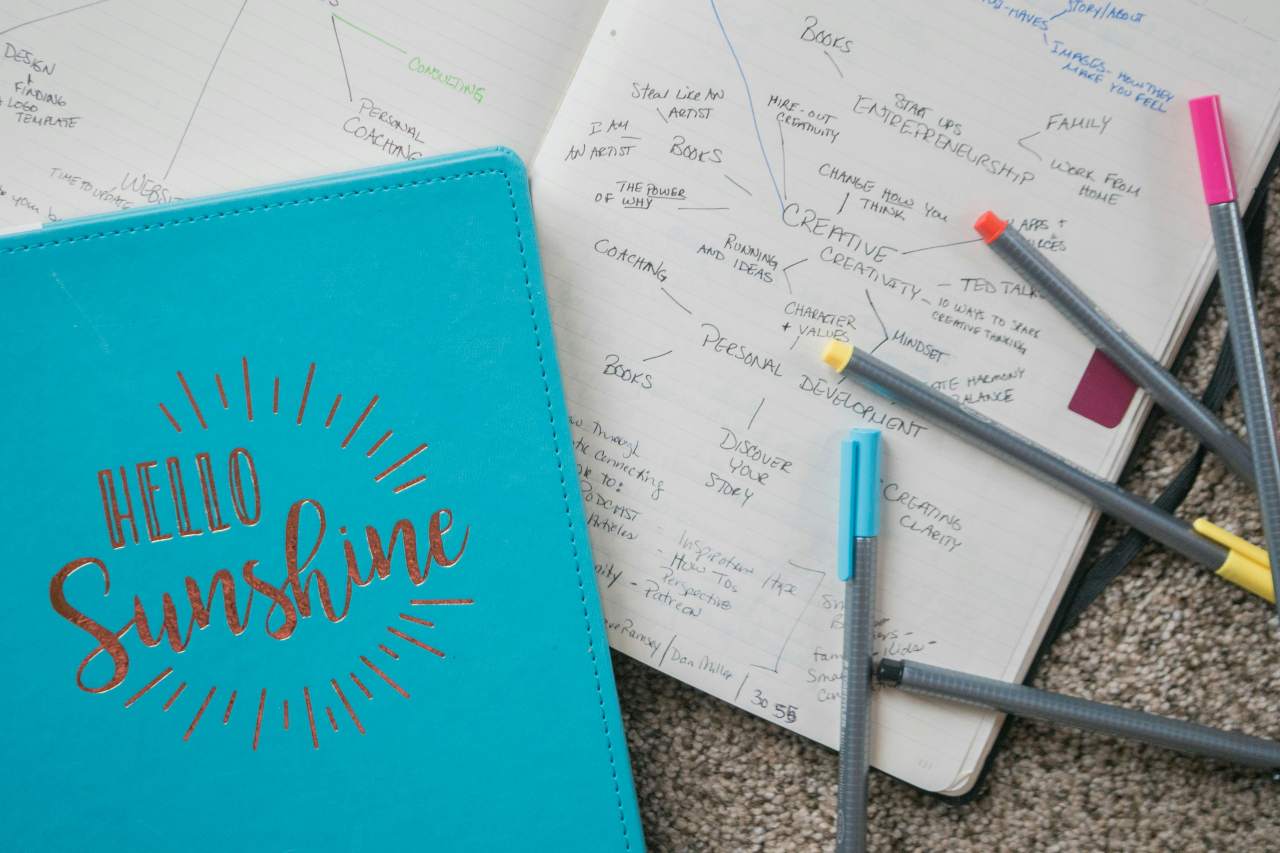 DESIGN
+
FINDING
A LOGO
TEMPLATE
CONSULTING
PERSONAL
COACHING
TIME TO UPDATE
your
HELLO
Sunshine
STORY/ABOUT
IMAGES - HOW THEY
MAKE YOU FEEL
BOOKS
START UPS
ENTREPRENEURSHIP
FAMILY
WORK FROM
HOME
Steal Like AN
ARTIST
I AM
AN ARTIST
BOOKS
THE POWER
OF WHY
HIRE-OUT
CREATIVITY
CHANGE HOW YOU
THINK
CREATIVE
CREATIVITY
APPS +
RUNNING
AND IDEAS
TED TALKS
10 WAYS TO SPARK
CREATIVE THINKING
MINDSET
HARMONY
BALANCE
COACHING
CHARACTER
+ VALUES
PERSONAL DEVELOPMENT
BOOKS
DISCOVER
YOUR
STORY
CREATING
CLARITY
Through
connecting
to:
PODCAST
Articles
- Inspiration/type
- How Tos
Perspective
- Patreon
Ramsey/Don Miller
30